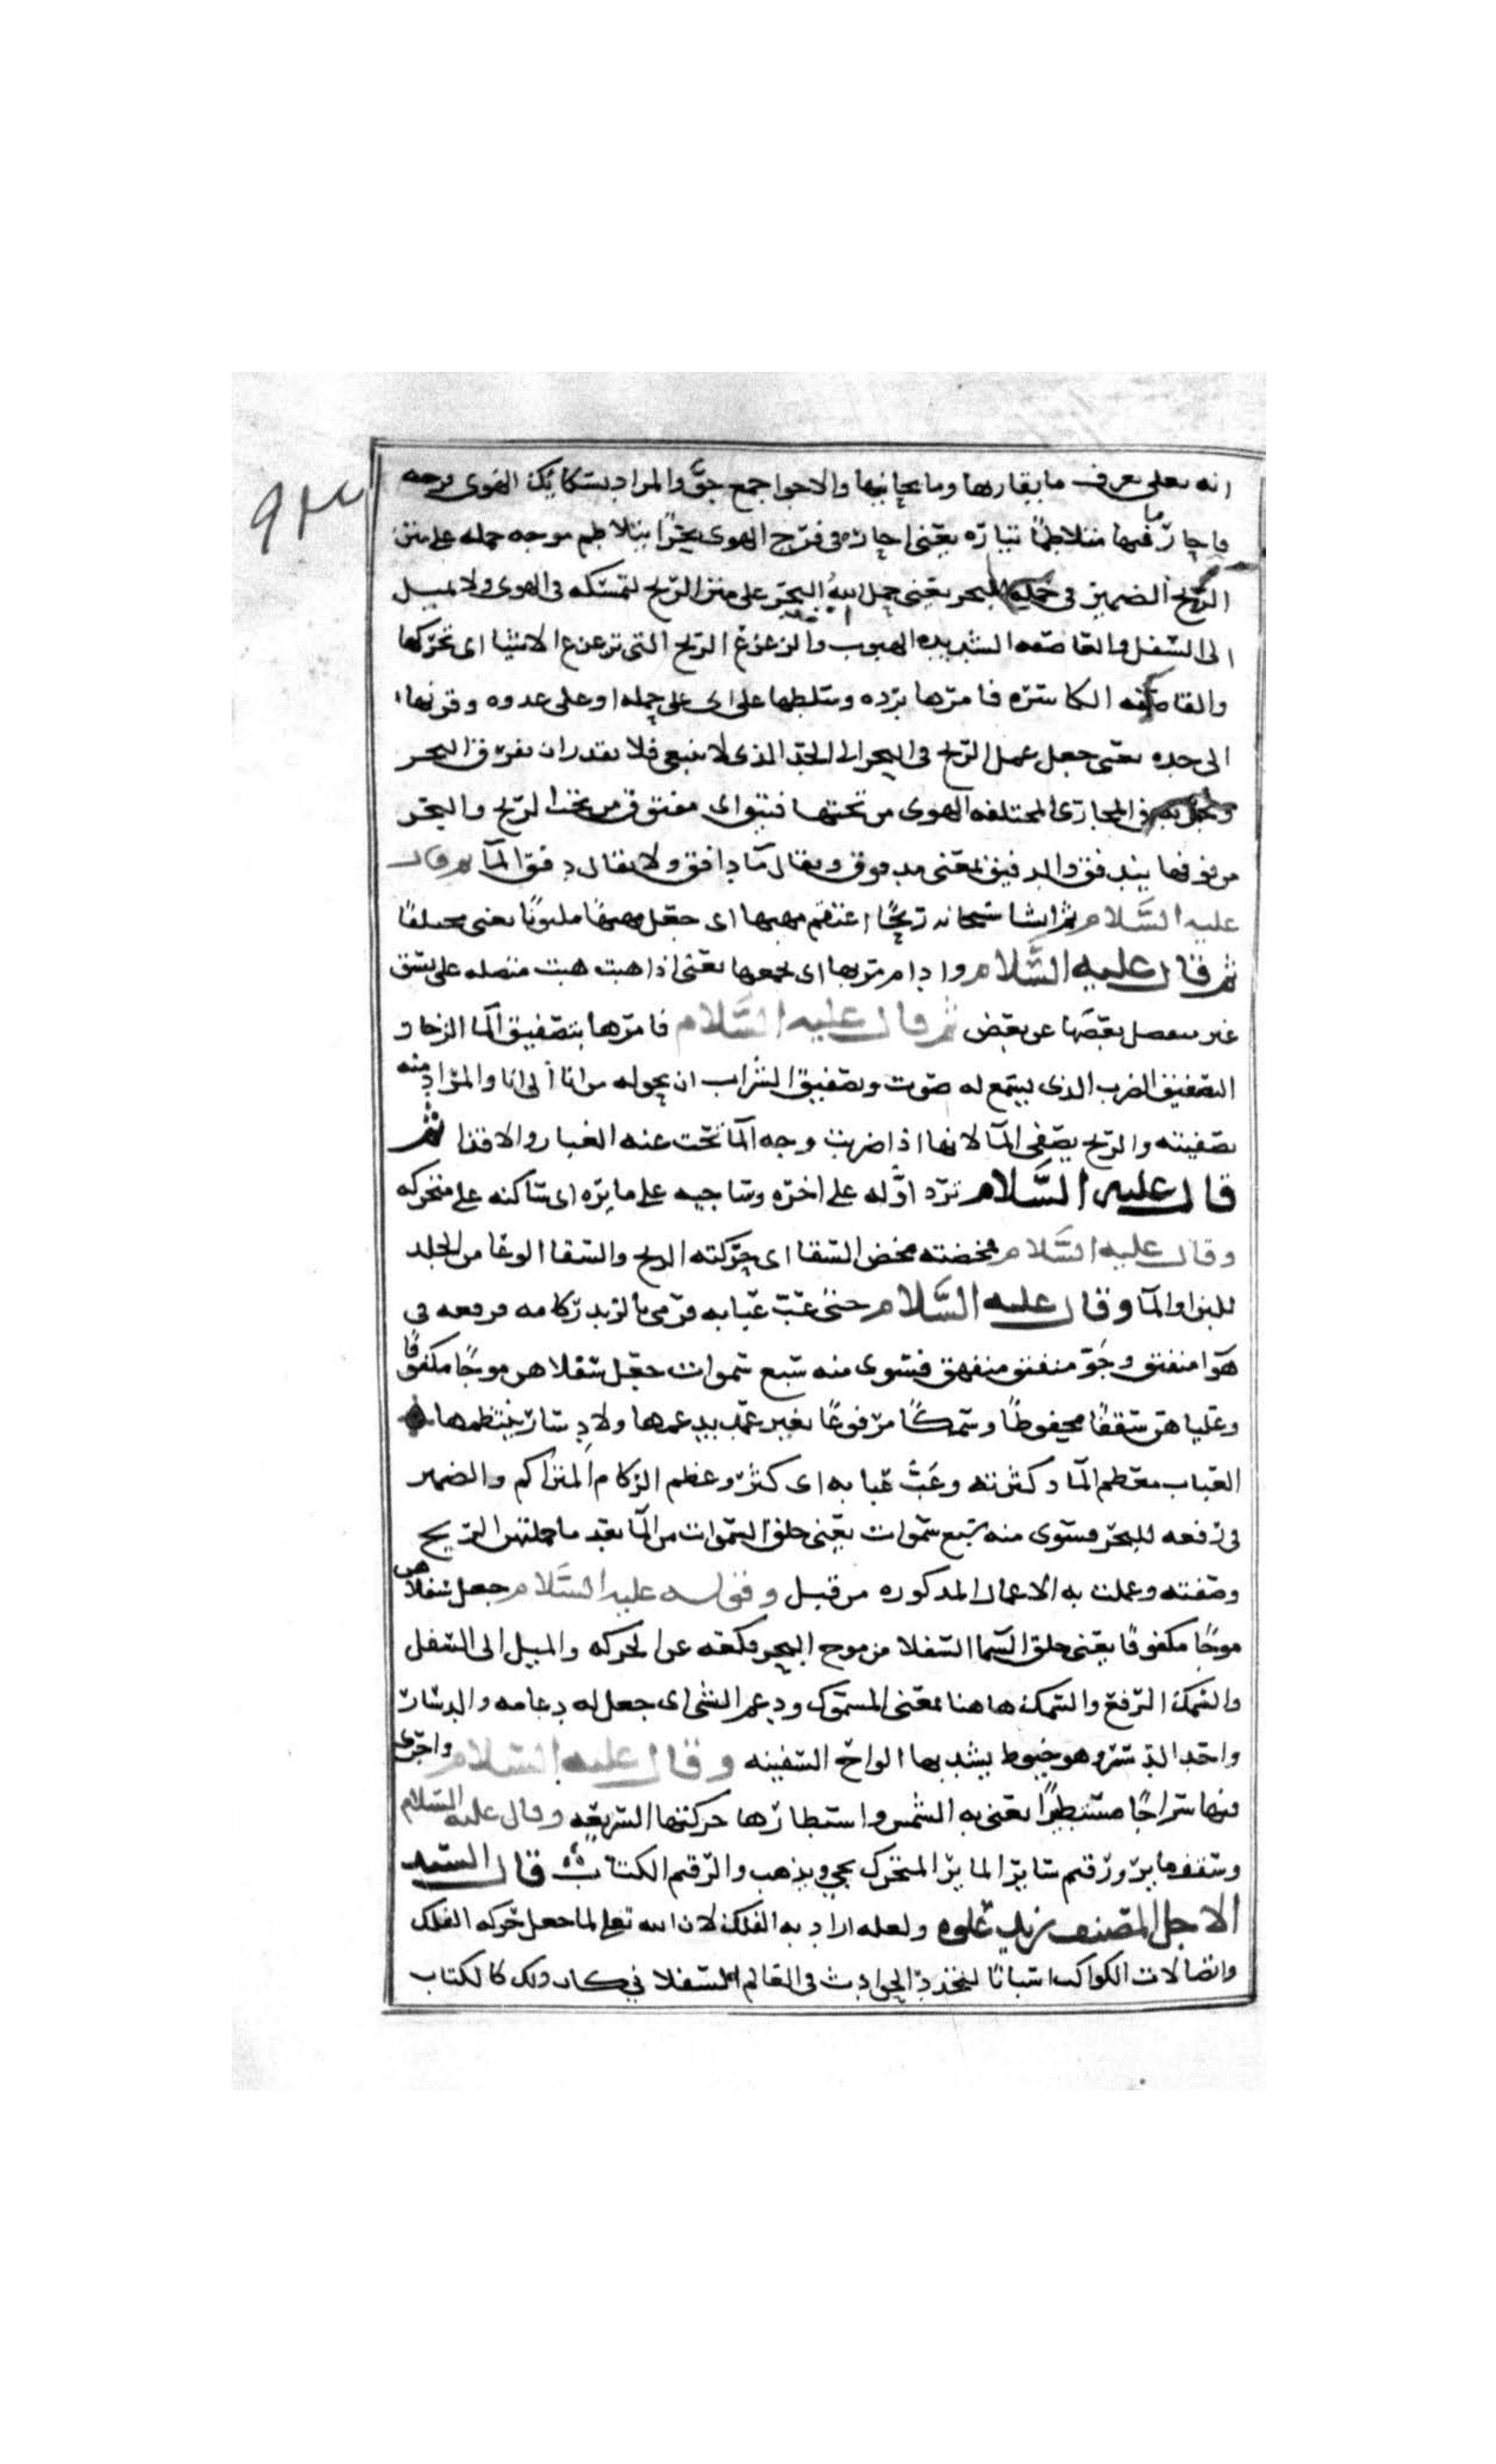 ٩٣
انه تعلى يعرف ما يقاربها وما يجانبها والاجوا جمع جوّ والمراد بسكايك الهوى فرجه
فاجاز فيها ما متلاطمًا تياره يعنى اجازه فى فرج الهوى بحرًا يتلاطم موجه حمله على متن
الريح الضمير فى حمله للبحر يعنى حمل الله البحر على متن الريح لتمسكه فى الهوى ولا يميل
الى السفل والعاصفه الشديده الهبوب والزعزع الريح التى تزعزع الاشيا اى تحركها
والقاصفه الكاسره فامرها برده وسلطها على اى على حمله او على عدوه وقرنها
الى حده يعنى جعل عمل الريح فى البحر الى الحد الذى لا ينبغى فلا يقدر ان يفرق البحر
فى المجارى المختلفه الهوى من تحتها فتيق اى مفتوق من تحت الريح والبحر
من فوقها يندفق والدفيق بمعنى مدفوق ويقال مآ دافق ولا يقال دفق المآ ثم قال
عليه السلام ثم انشا سبحانه ريحًا اعتقم مهبها اى جعل مهبها ملتويًا يعنى مختلفًا
ثم قال عليه السلام وادام مربها اى مجمعها يعنى اذا هبت هبت متصله على نسق
غير منفصل بعضها عن بعض ثم قال عليه السلام فامرها بتصفيق المآ الزخار
التصفيق الضرب الذى يسمع له صوت وتصفيق الشراب ان يحوله من انا الى انا والمراد منه
تصفيته والريح يصفى المآ لانها اذا ضربت وجه المآ نحت عنه الغبار والاقذا ثم
قال عليه السلام ترد اوّله على اخره وساجيه على مايره اى ساكنه على متحركه
وقال عليه السلام مخضته مخض السقا اى حركته الريح والسقا الوعا من الجلد
للبن او المآ وقال عليه السلام حتى عبّ عبابه فرمى بالزبد ركامه فرفعه فى
هوا منفتق وجوّ منفتق منفهق فسوى منه سبع سموات جعل سفلاهن موجًا مكفوفًا
وعلياهن سقفًا محفوظًا وسمكًا مرفوعًا بغير عمد يدعمها ولا دسار ينتظمها
العباب معظم المآ وكثرته وعبّ عبابه اى كثر وعظم الركام المتراكم والضمير
فى رفعه للبحر فسوى منه سبع سموات يعنى خلق السموات من المآ بعد ما حملته الريح
وصفته وعملت به الاعمال المذكوره من قبل وقوله عليه السلام جعل سفلاهن
موجًا مكفوفًا يعنى خلق السما السفلا من موج البحر فكفه عن الحركه والميل الى السفل
والسمك الرفع والسمك هاهنا بمعنى المسموك ودعم الشى اى جعل له دعامه والدسار
واحد الدسر وهو خيوط يشد بها الواح السفينه وقال عليه السلام واجرى
فيها سراجًا مستطيرًا يعنى به الشمس واستطارها حركتها السريعه وقال عليه السلام
وسقف ماير ورقيم ساير الماير المتحرك يجى ويذهب والرقيم الكتاب قال السيد
الاجل المصنف زيد علوه ولعله اراد به الفلك لان الله تعلى لما جعل حركه الفلك
واتصالات الكواكب اسبابًا لتجدد الحوادث فى العالم السفلا فكان ذلك كالكتاب